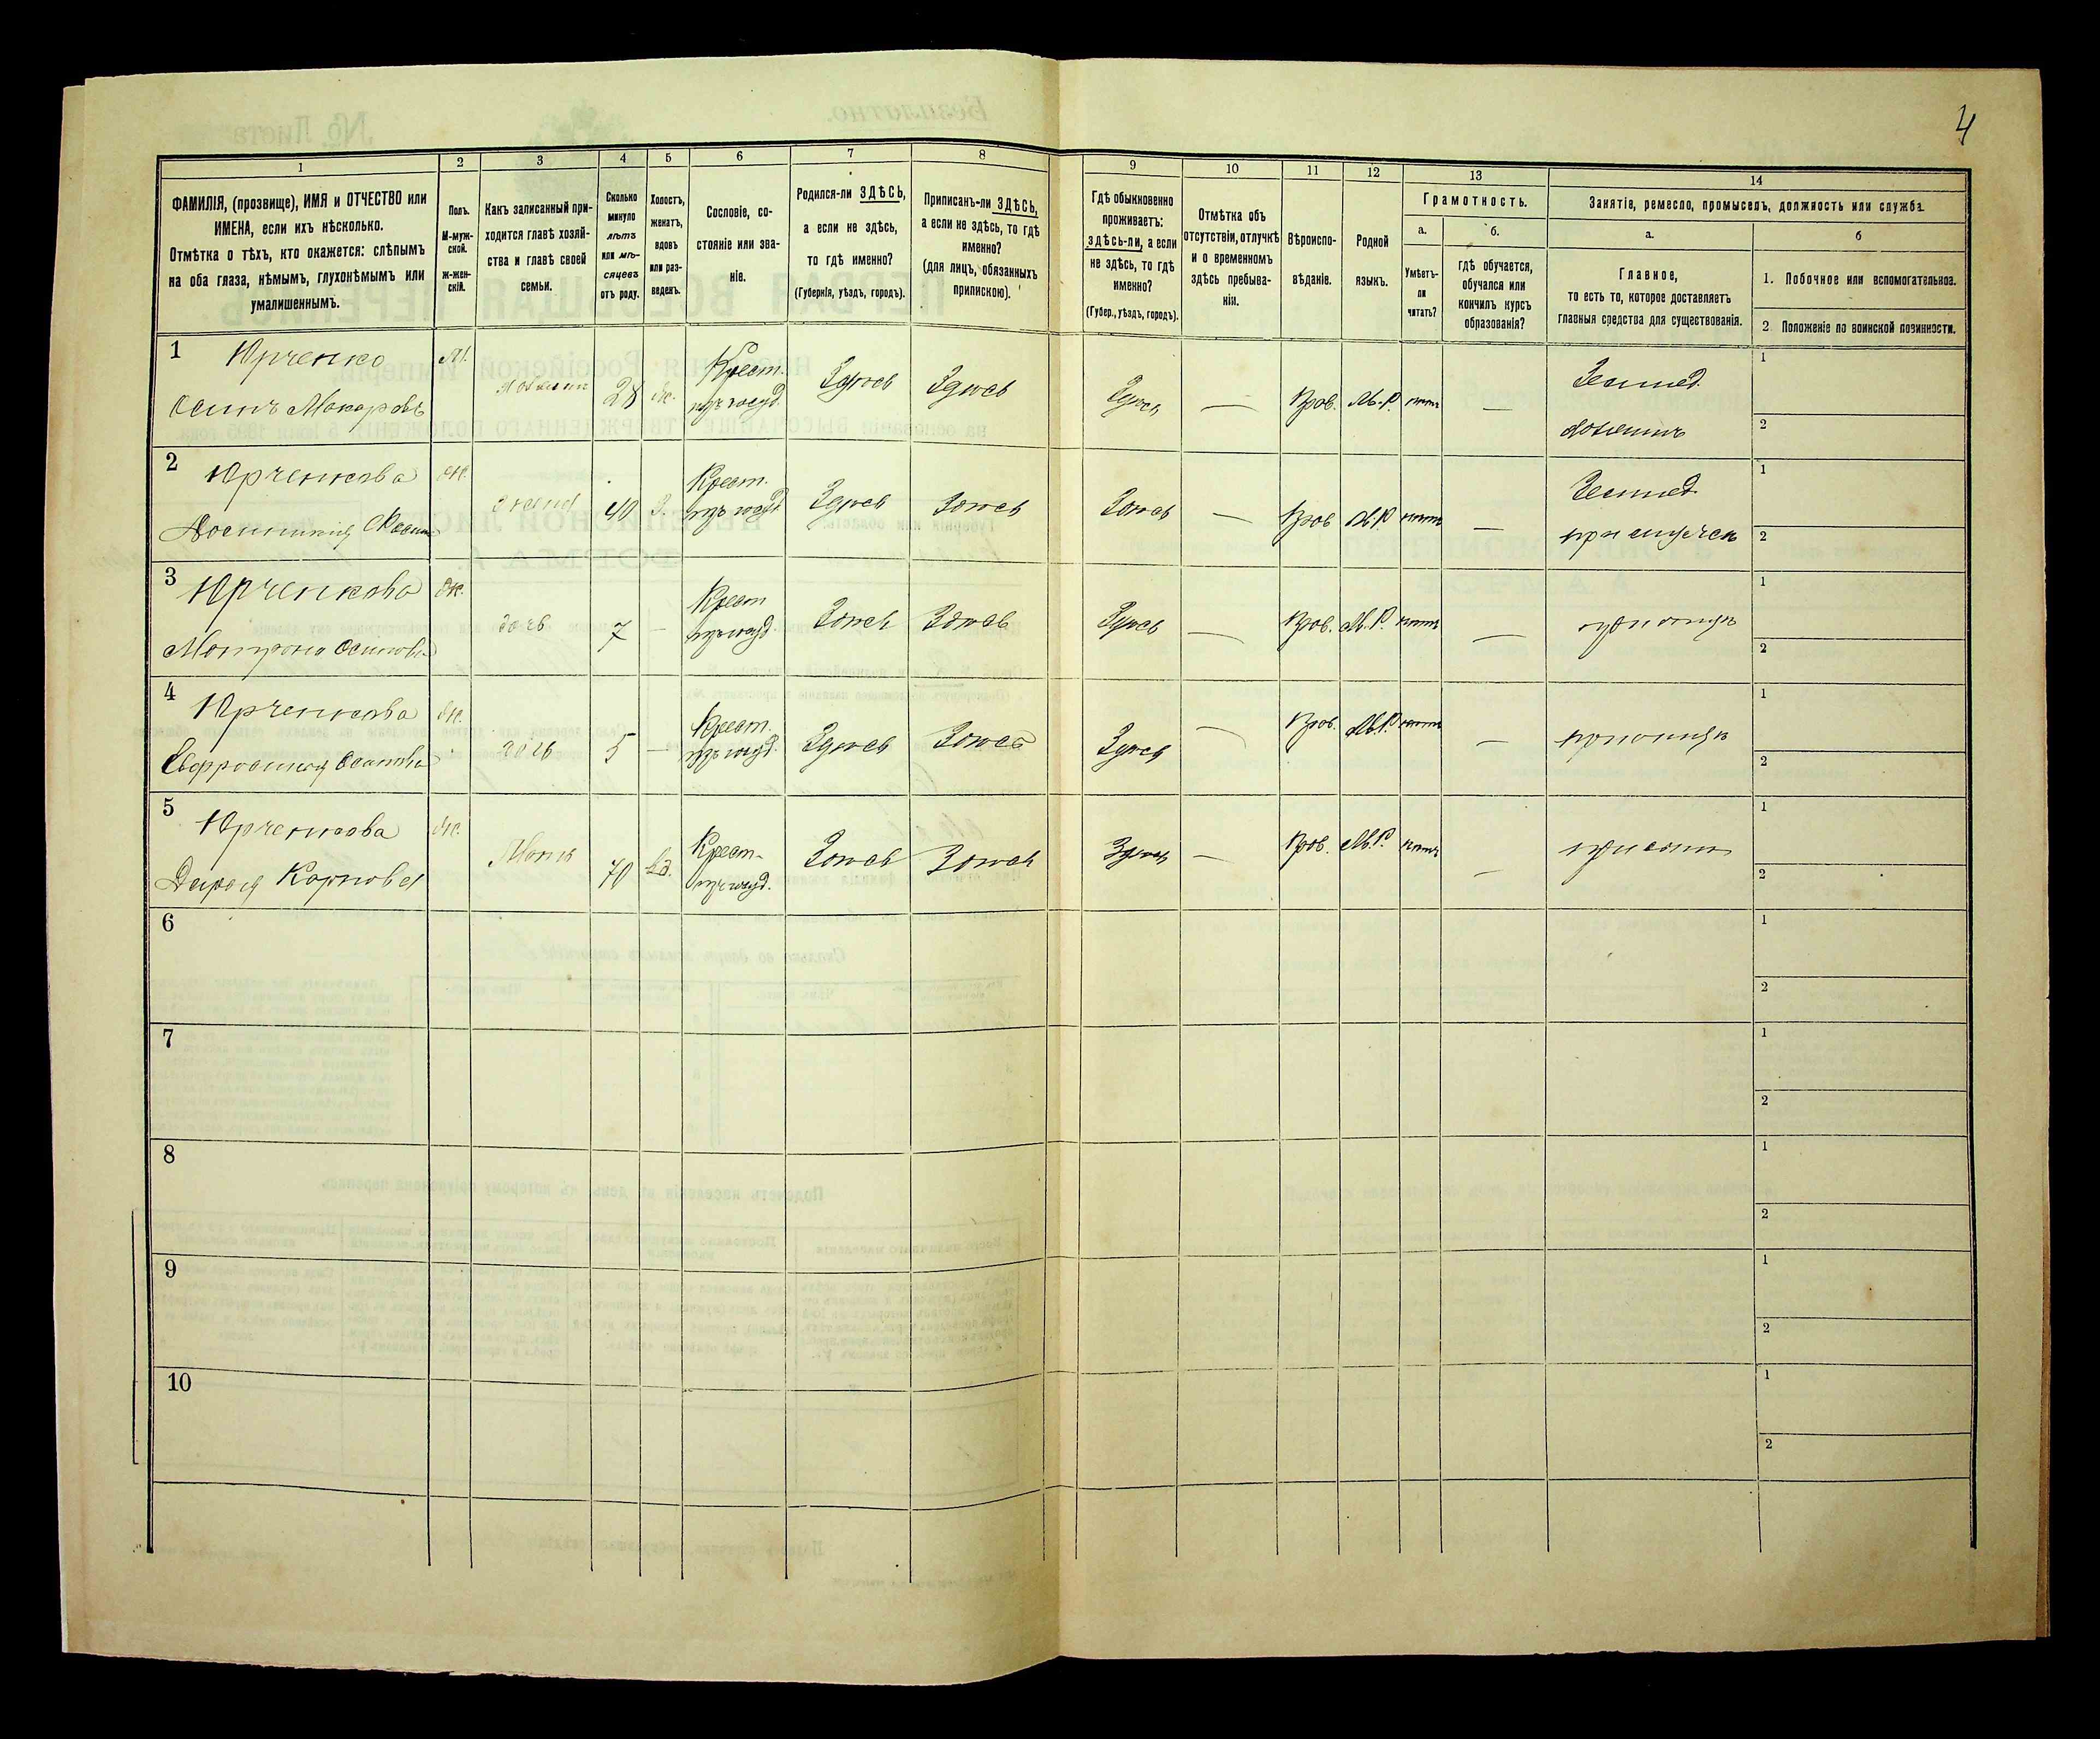 4
1
2
3
4
5
6
7
8
9
10
11
12
13
14
ФАМИЛІЯ, (прозвище), ИМЯ и ОТЧЕСТВО или
ИМЕНА, если ихъ нѣсколько.
Отмѣтка о тѣхъ, кто окажется: слѣпымъ
на оба глаза, нѣмымъ, глухонѣмымъ или
умалишеннымъ.
Полъ.
М-муж-
ской.
Ж-жен-
скій.
Какъ записанный при-
ходится главѣ хозяй-
ства и главѣ своей
семьи.
Сколько
минуло
лѣтъ
или мѣ-
сяцевъ
отъ роду.
Холостъ,
женатъ,
вдовъ
или раз-
веденъ.
Сословіе, со-
стояніе или зва-
ніе.
Родился-ли ЗДѢСЬ,
а если не здѣсь,
то гдѣ именно?
(Губернія, уѣздъ, городъ).
Приписанъ-ли ЗДѢСЬ,
а если не здѣсь, то гдѣ
именно?
(для лицъ, обязанныхъ
припискою).
Гдѣ обыкновенно
проживаетъ:
здѣсь-ли, а если
не здѣсь, то гдѣ
именно?
(Губер., уѣздъ, городъ).
Отмѣтка объ
отсутствіи, отлучкѣ
и о временномъ
здѣсь пребыва-
ніи.
Вѣроиспо-
вѣданіе.
Родной
языкъ.
Грамотность.
а.
Умѣетъ-
ли
читать?
б.
гдѣ обучается,
обучался или
кончилъ курсъ
образованія?
Занятіе, ремесло, промыселъ, должность или служба.
а.
Главное,
то есть то, которое доставляетъ
главныя средства для существованія.
б
1. Побочное или вспомогательное.
2 Положеніе по воинской повинности.
1
Юрченко
Осипъ Макаровъ
М.
хозяинъ
28
ж.
Крест.
изъ госуд.
Здѣсь
Здѣсь
Здѣсь
—
Прав.
М.-Р.
нѣтъ
—
Землед.
хозяинъ
1
2
2
Юрченкова
Ж.
жена
40
З.
Крест.
изъ госуд.
Здѣсь
Здѣсь
Здѣсь
—
Прав
М.Р.
нѣтъ
—
Землед.
при мужѣ
1
2
3
Юрченкова
Матрона Осипова
Ж.
дочь
7
—
Крест
изъ госуд.
Здѣсь
Здѣсь
Здѣсь
—
Прав.
М.Р.
нѣтъ
—
при отцѣ
1
2
4
Юрченкова
Евфросинія Осипова
Ж.
дочь
5
—
Крест.
изъ госуд.
Здѣсь
Здѣсь
Здѣсь
—
Прав.
М.Р.
нѣтъ
—
при отцѣ
1
2
5
Юрченкова
Дарья Карпова
Ж.
Мать
70
вд.
Крест.
изъ госуд.
Здѣсь
Здѣсь
Здѣсь
—
Прав.
М.Р.
нѣтъ
—
при сынѣ
1
2
6
1
2
7
1
2
8
1
2
9
1
2
10
1
2